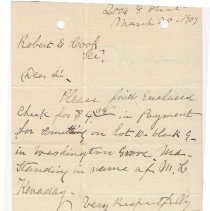 March 25 - 1909
Robert E Cook
Dear Sir.
Please find Enclosed
Check for $ in Payment
for on Lot 2. block 9
in Washington Grove Md.
Standing in name of M. K
Kinaday.
Very Respectfully